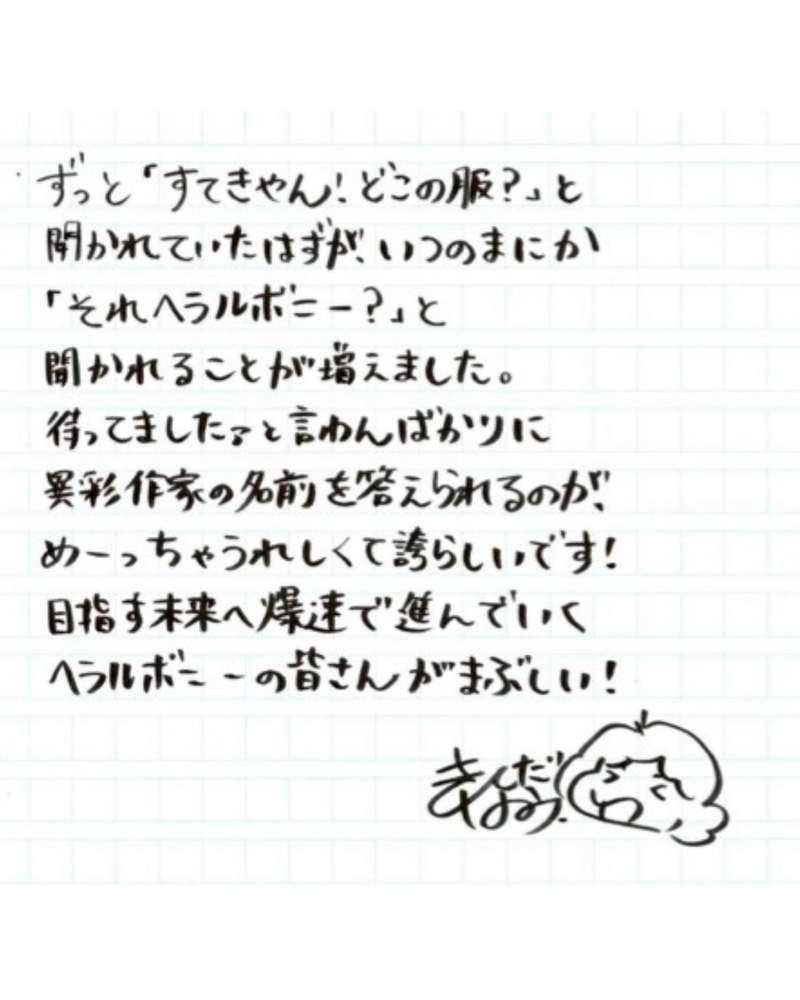 ずっと「すてきやん！どこの服？」と
聞かれていたはずが、いつのまにか
「それヘラルボニー？」と
聞かれることが増えました。
待ってましたァと言わんばかりに
異彩作家の名前を答えられるのが、
めーっちゃうれしくて誇らしいです！
目指す未来へ爆速で進んでいく
ヘラルボニーの皆さんがまぶしい！